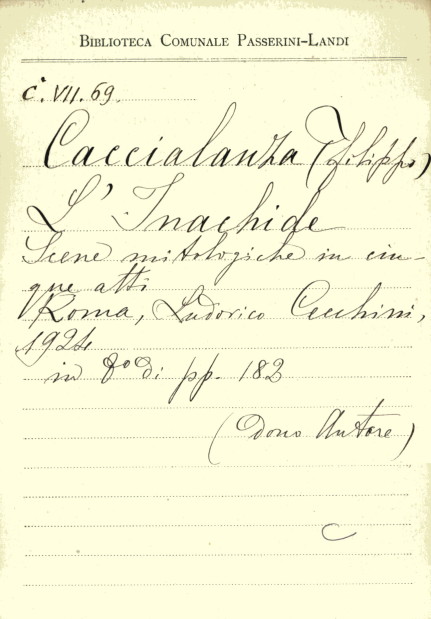 BIBLIOTECA COMUNALE PASSERINI-LANDI
C. VII. 69.
Caccialanza (Filippo)
L' Inachide
Scene mitologiche in cin-
que atti
Roma, Ludovico Cecchini,
1924
in 8° di pp. 182
(Dono Autore)
C